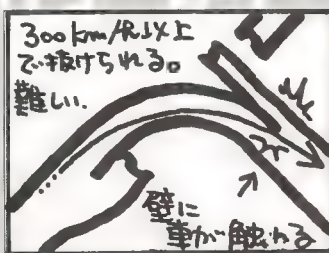 300km/h以上
で抜けられる。
難しい.
壁に
車が触れる